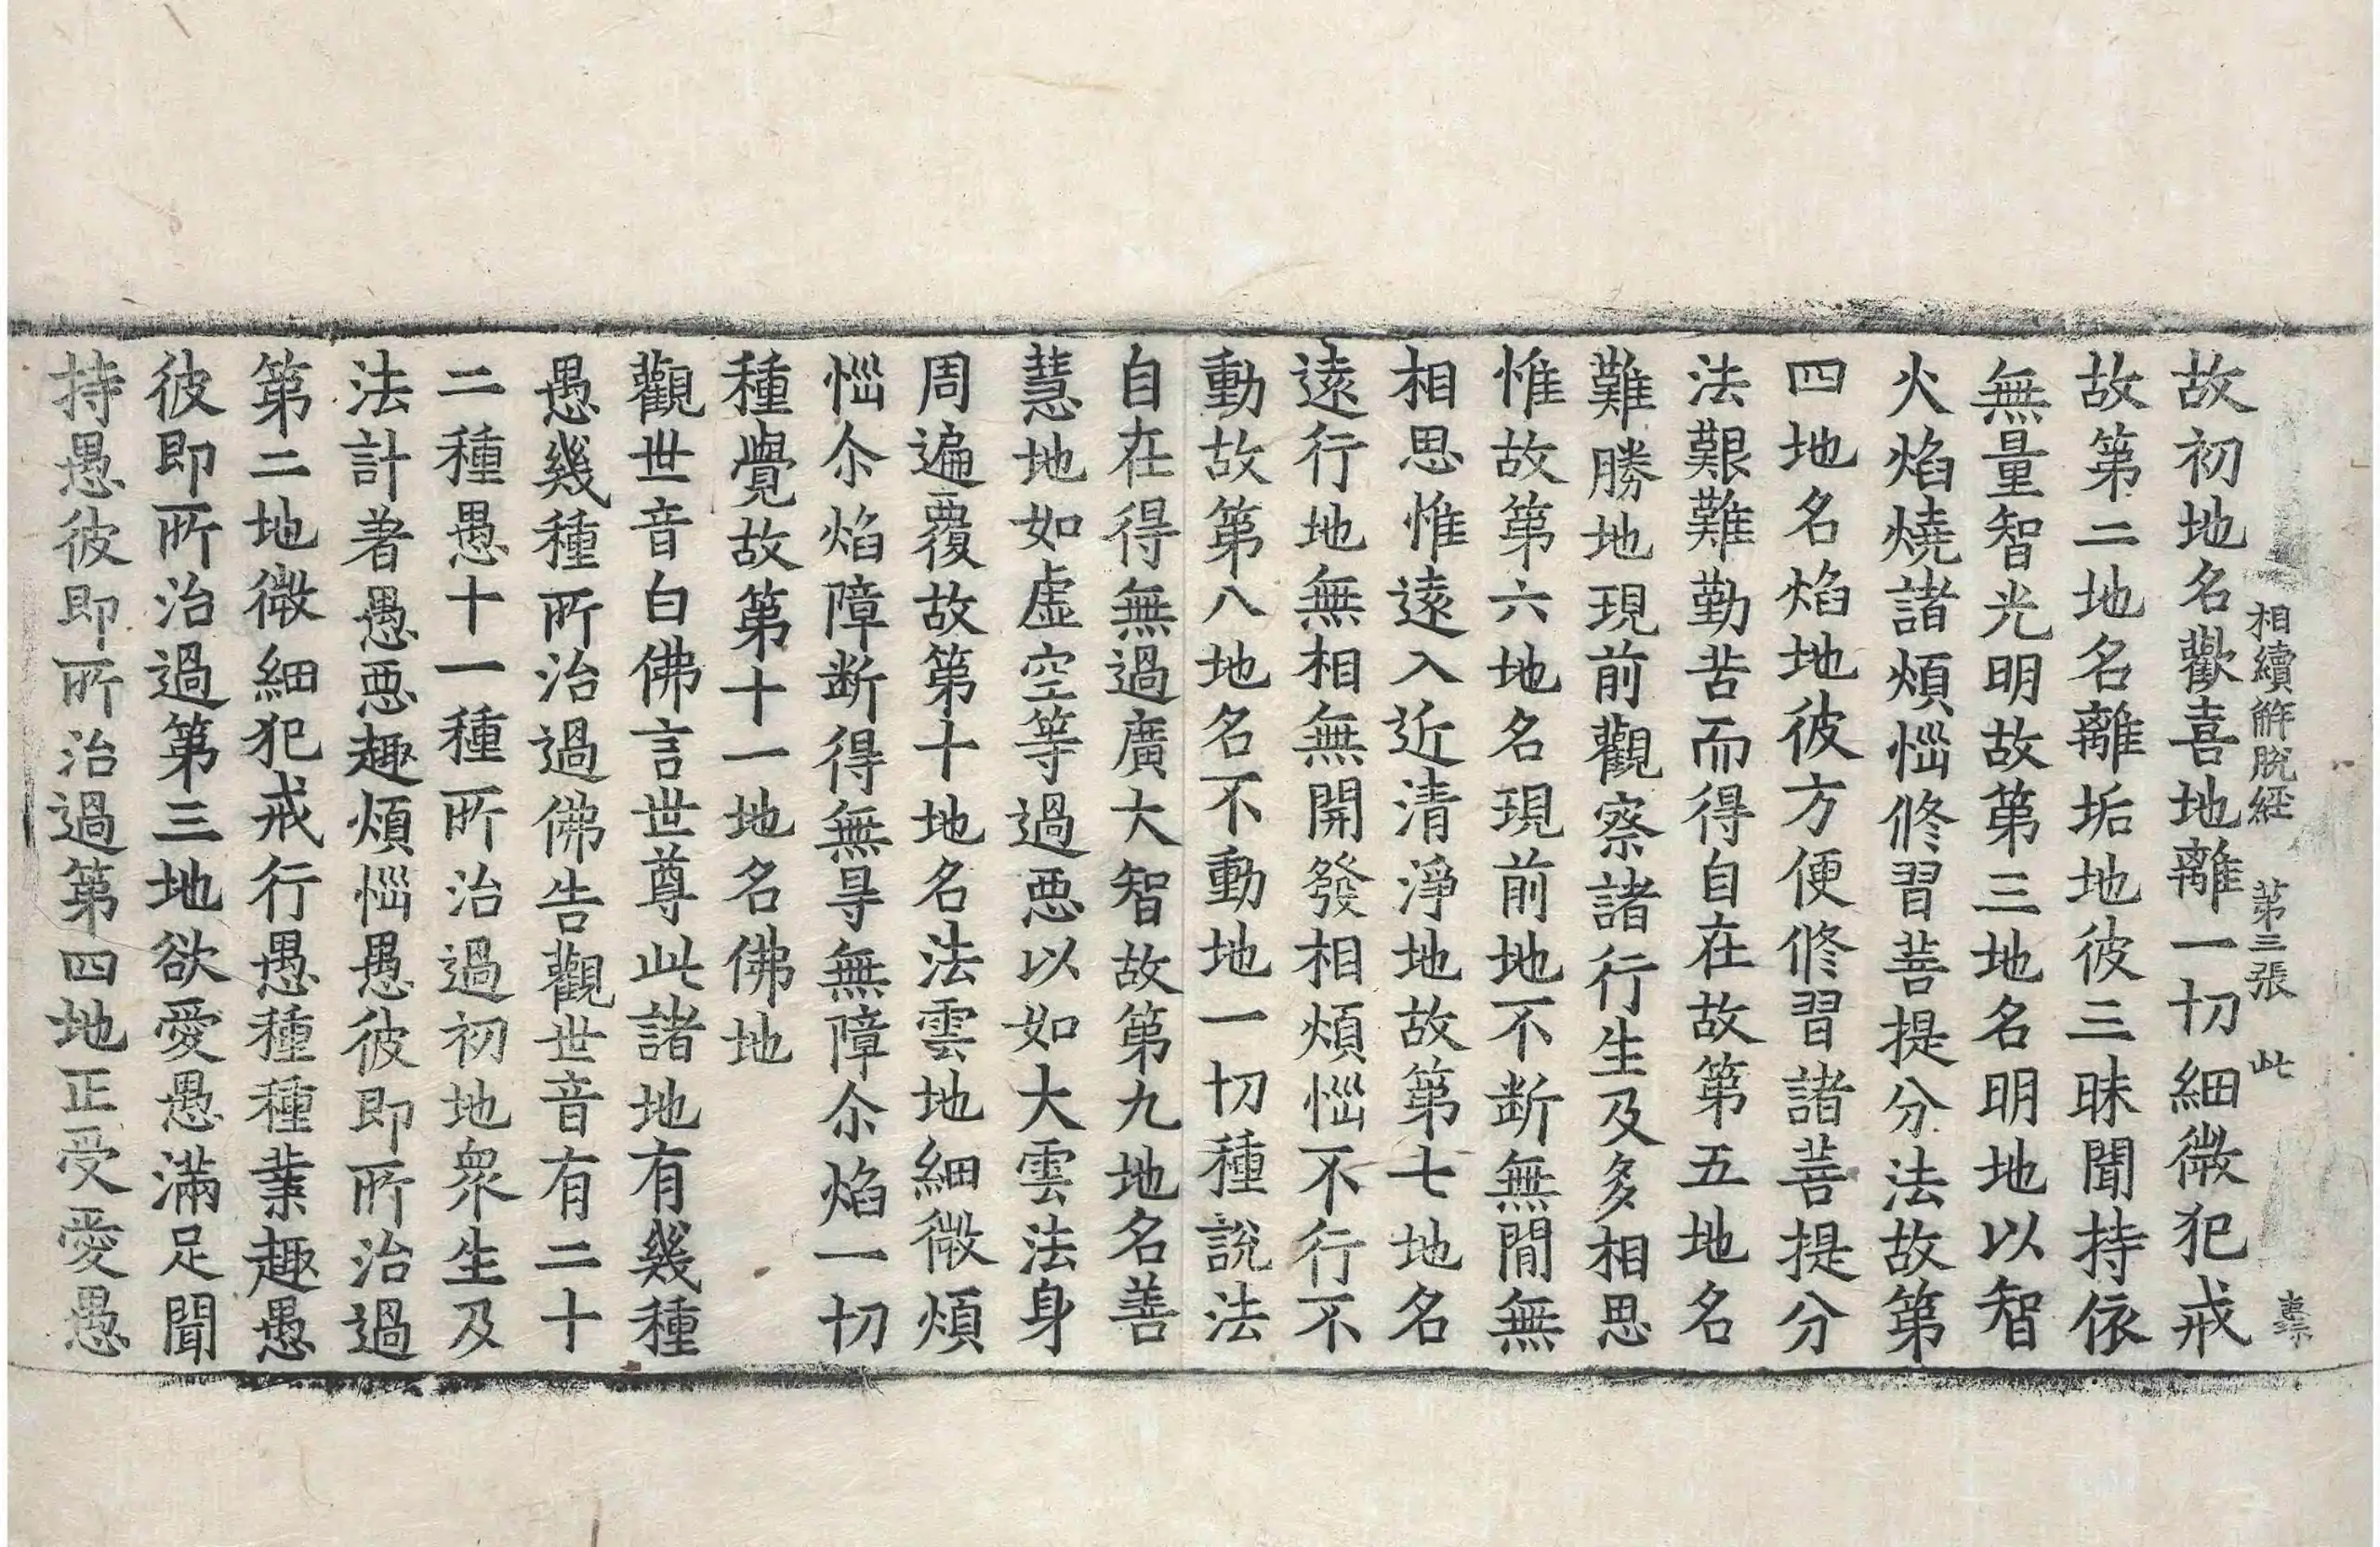 相續解脫経 第三張 此
故初地名歡喜地離一切細微犯戒
故第二地名離垢地彼三昧聞持依
無量智光明故第三地名明地以智
火焰燒諸煩惱修習菩提分法故第
四地名焰地彼方便修習諸菩提分
法艱難勤苦而得自在故第五地名
難勝地現前觀察諸行生及多相思
惟故第六地名現前地不断無間無
相思惟遠入近清淨地故第七地名
遠行地無相無開發相煩惱不行不
動故第八地名不動地一切種說法
自在得無過廣大智故第九地名善
慧地如虛空等過惡以如大雲法身
周遍覆故第十地名法雲地細微煩
惱尒焰障断得無㝵無障尒焰一切
種覺故第十一地名佛地
觀世音白佛言世尊此諸地有幾種
愚幾種所治過佛告觀世音有二十
二種愚十一種所治過初地衆生及
法計著愚惡趣煩惱愚彼即所治過
第二地微細犯戒行愚種種業趣愚
彼即所治過第三地欲愛愚滿足聞
持愚彼即所治過第四地正受愛愚